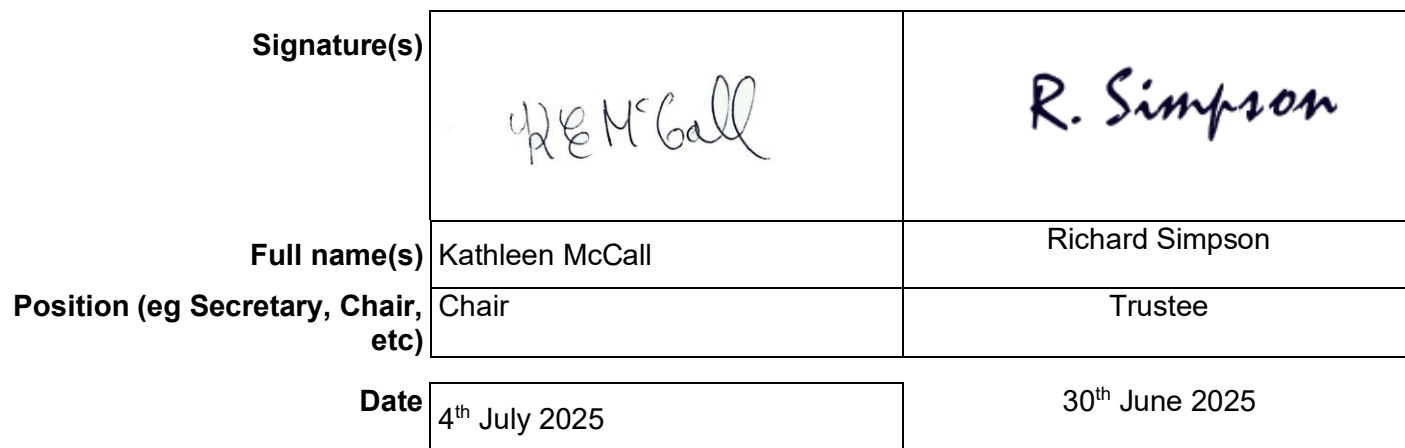 Signature(s)
KE McCall
R. Simpson
Full name(s) Kathleen McCall Richard Simpson
Position (eg Secretary, Chair, Chair Trustee
etc)
Date 4th July 2025 30th June 2025